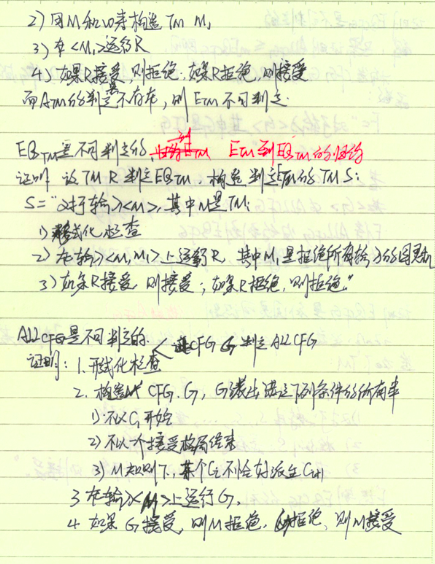 2) 用M和w来构造TM M₁
3) 在<M₁>运行R
4) 如果R接受,则拒绝,如果R拒绝,则接受
而ATM的判定器不存在,则ETM不可判定
EQTM是不可判定的, ETM ETM到EQTM的归约
证明 设TM R判定EQTM,构造判定ETM的TM S:
S="对于输入<M>,其中M是TM:
1) 形式化检查
2) 在输入<M,M₁>上运行R,其中M₁是拒绝所有输入的图灵机
3) 如果R接受,则接受;如果R拒绝,则拒绝."
ALLCFG是不可判定的. CFG G 判定ALLCFG
证明: 1. 形式化检查
2. 构造 CFG. G, G派生出满足下列条件的所有串
1) 不以C₁开始
2) 不以一个接受格局结束
3) M规则下,某个Ci不恰好派生Ci+1
3 在输入<M>上运行G,
4. 如果G接受,则M拒绝, 拒绝,则M接受